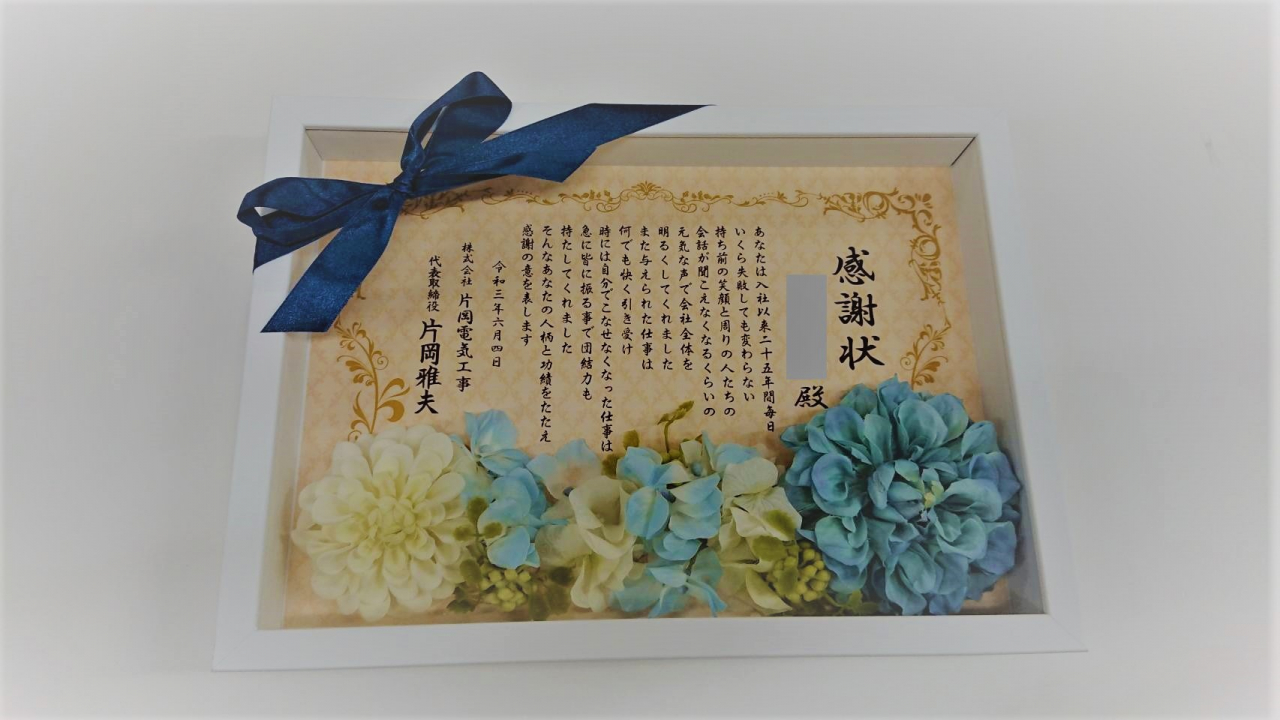 感謝状
殿
あなたは入社以来二十五年間毎日
いくら失敗しても変わらない
持ち前の笑顔と周りの人たちの
会話が聞こえなくなるくらいの
元気な声で会社全体を
明るくしてくれました
また与えられた仕事は
何でも快く引き受け
時には自分でこなせなくなった仕事は
急に皆に振る事で団結力も
持たしてくれました
そんなあなたの人柄と功績をたたえ
感謝の意を表します
令和三年六月四日
株式会社 片岡電気工事
代表取締役 片岡雅夫